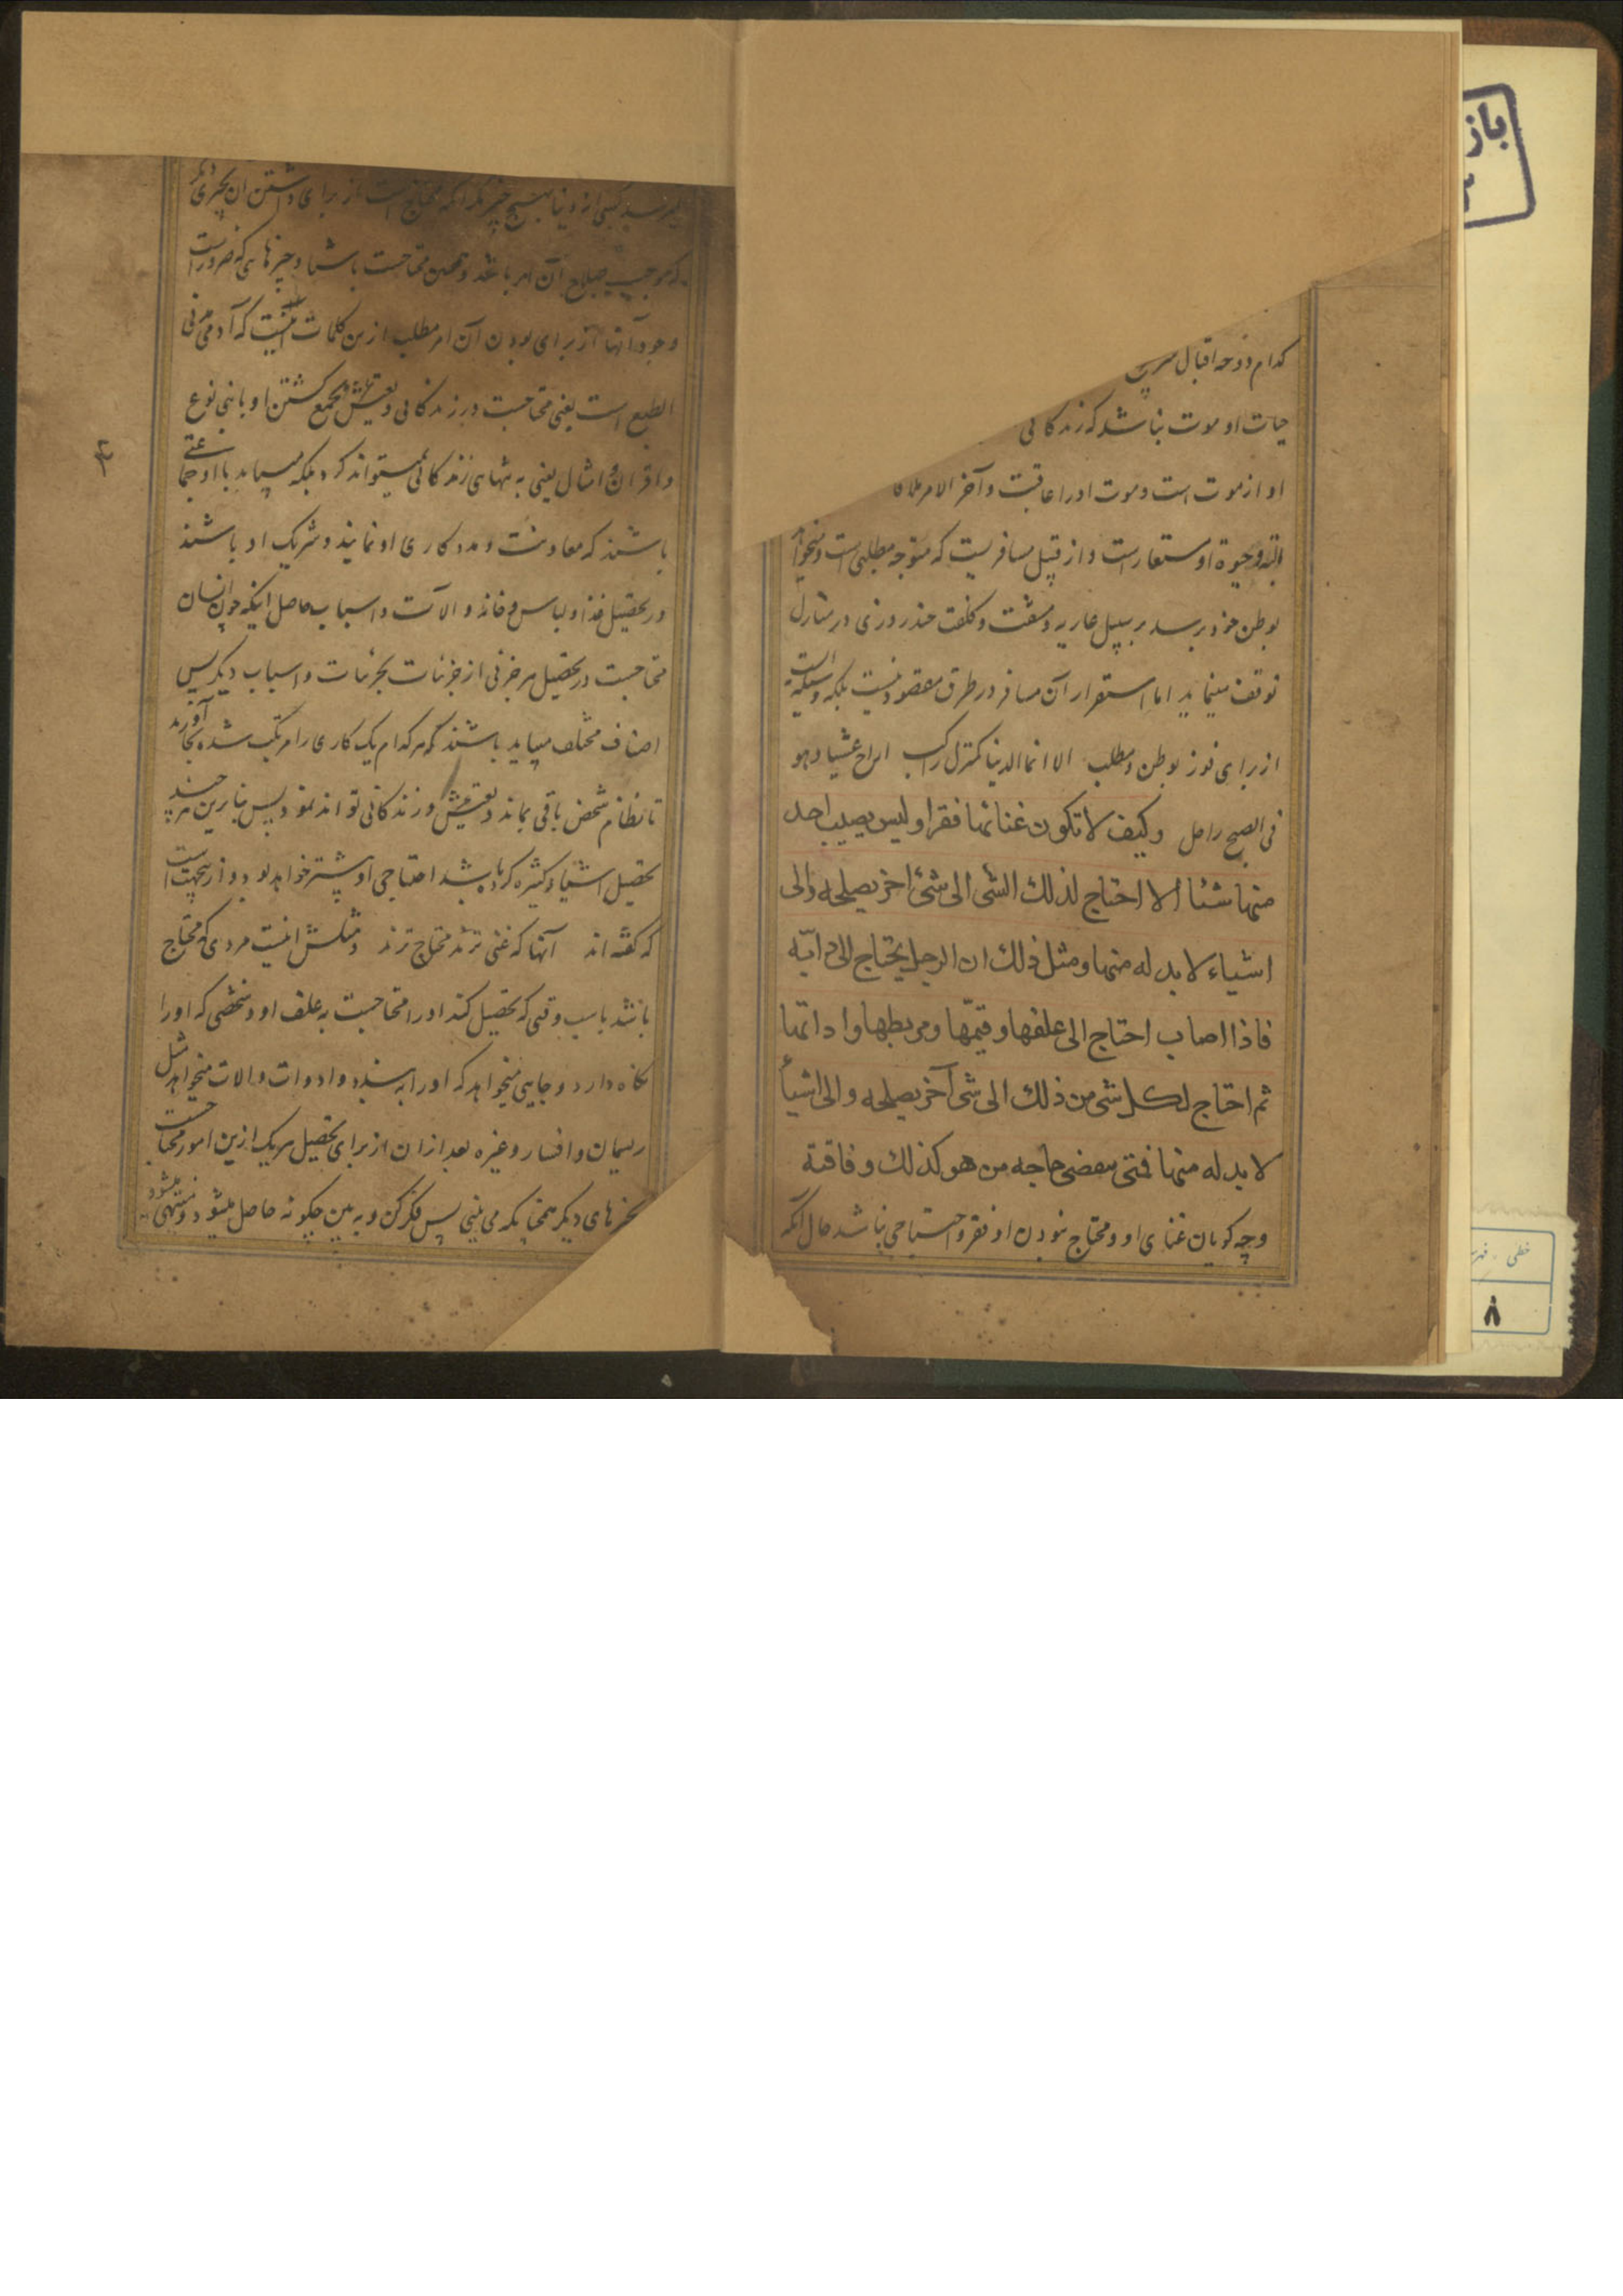 کدام دوحه اقبال سر
حیات او موت نباشد که زندگانی
او از موت است و موت او را عاقبت و آخر الامر
البته و حیوة او مستعار است و از قبیل مسافریست که متوجه مطلبی است و میخواهد
بوطن خود برسد بر سبیل عاریه و مشقت و کلفت چند روزی در منازل
توقف مینماید اما استقرار آن مسافر در طرق مقصود نیست بلکه وسیله است
از برای فوز بوطن و مطلب الا انما الدنیا کمنزل راکب اراح عشیا و هو
فی الصبح راحل وکیف لا تکون غنائها فقرا و لیس یصیب احد
منها شئا الا احتاج لذلك الشی الی شئ اخر یصلحه و الی
اشیاء لا بد له منها و مثل ذلك ان الرجل یحتاج الی دابّه
فاذا اصاب احتاج الی علفها و قیمّها و مربطها و اداتها
ثم احتاج لکل شی من ذلك الی شی آخر یصلحه و الی اشیاء
لا بد له منها فمتی ینقضی حاجه من هو کذلك و فاقته
وچه کویان غنای او و محتاج نبودن او فقر و احتیاجی نباشد حال آنکه
نمیرسد کسی از دنیا بهیچ چیز مکر آنکه محتاج است از برای داشتن ان بچیزی دیگر
که موجب صلاح آن امر باشد و همچنین محتاجست باشیا و چیزهایی که ضرور است
وجود آنها از برای بودن آن امر مطلب ازین کلمات اینست که آدمی مدنی
الطبع است یعنی محتاجست در زندگانی و تعیش بمجتمع کشتن او با بنی نوع
و اقران و امثال یعنی به تنهایی زندکانی نمیتواند کرد بلکه میباید با او جماعتی
باشند که معاونت و مددکاری او نمایند و شریک او باشند
در تحصیل غذا و لباس و خانه و الات و اسباب حاصل اینکه چون انسان
محتاجست در تحصیل هر جزئی از جزئیات بجزئیات و اسباب دیکر پس
اصناف مختلف میباید باشند که هر کدام یک کاری را مرتکب شده بجا آورند
تا نظام شخص باقی بماند و تعیش و زندکانی تواند نمود پس بنابرین هر چند
تحصیل اشیاء کثیره کرده باشد احتیاجی او بیشتر خواهد بود و ازینجهت است
که کفته اند آنها که غنی ترند محتاج ترند و مثلش اینست مردی که محتاج
باشد باسب وقتی که تحصیل کند او را محتاجست به علف او و شخصی که او را
نکاه دارد و جایی میخواهد که او را به بندد و ادوات و الات میخواهد مثل
ریسمان و افسار و غیره بعد از ان از برای تحصیل هر یک ازین امور محتاجست
بچیزهای دیکر همچنانکه می بینی پس فکر کن و به بین چکونه حاصل میشود و منتهی میشود